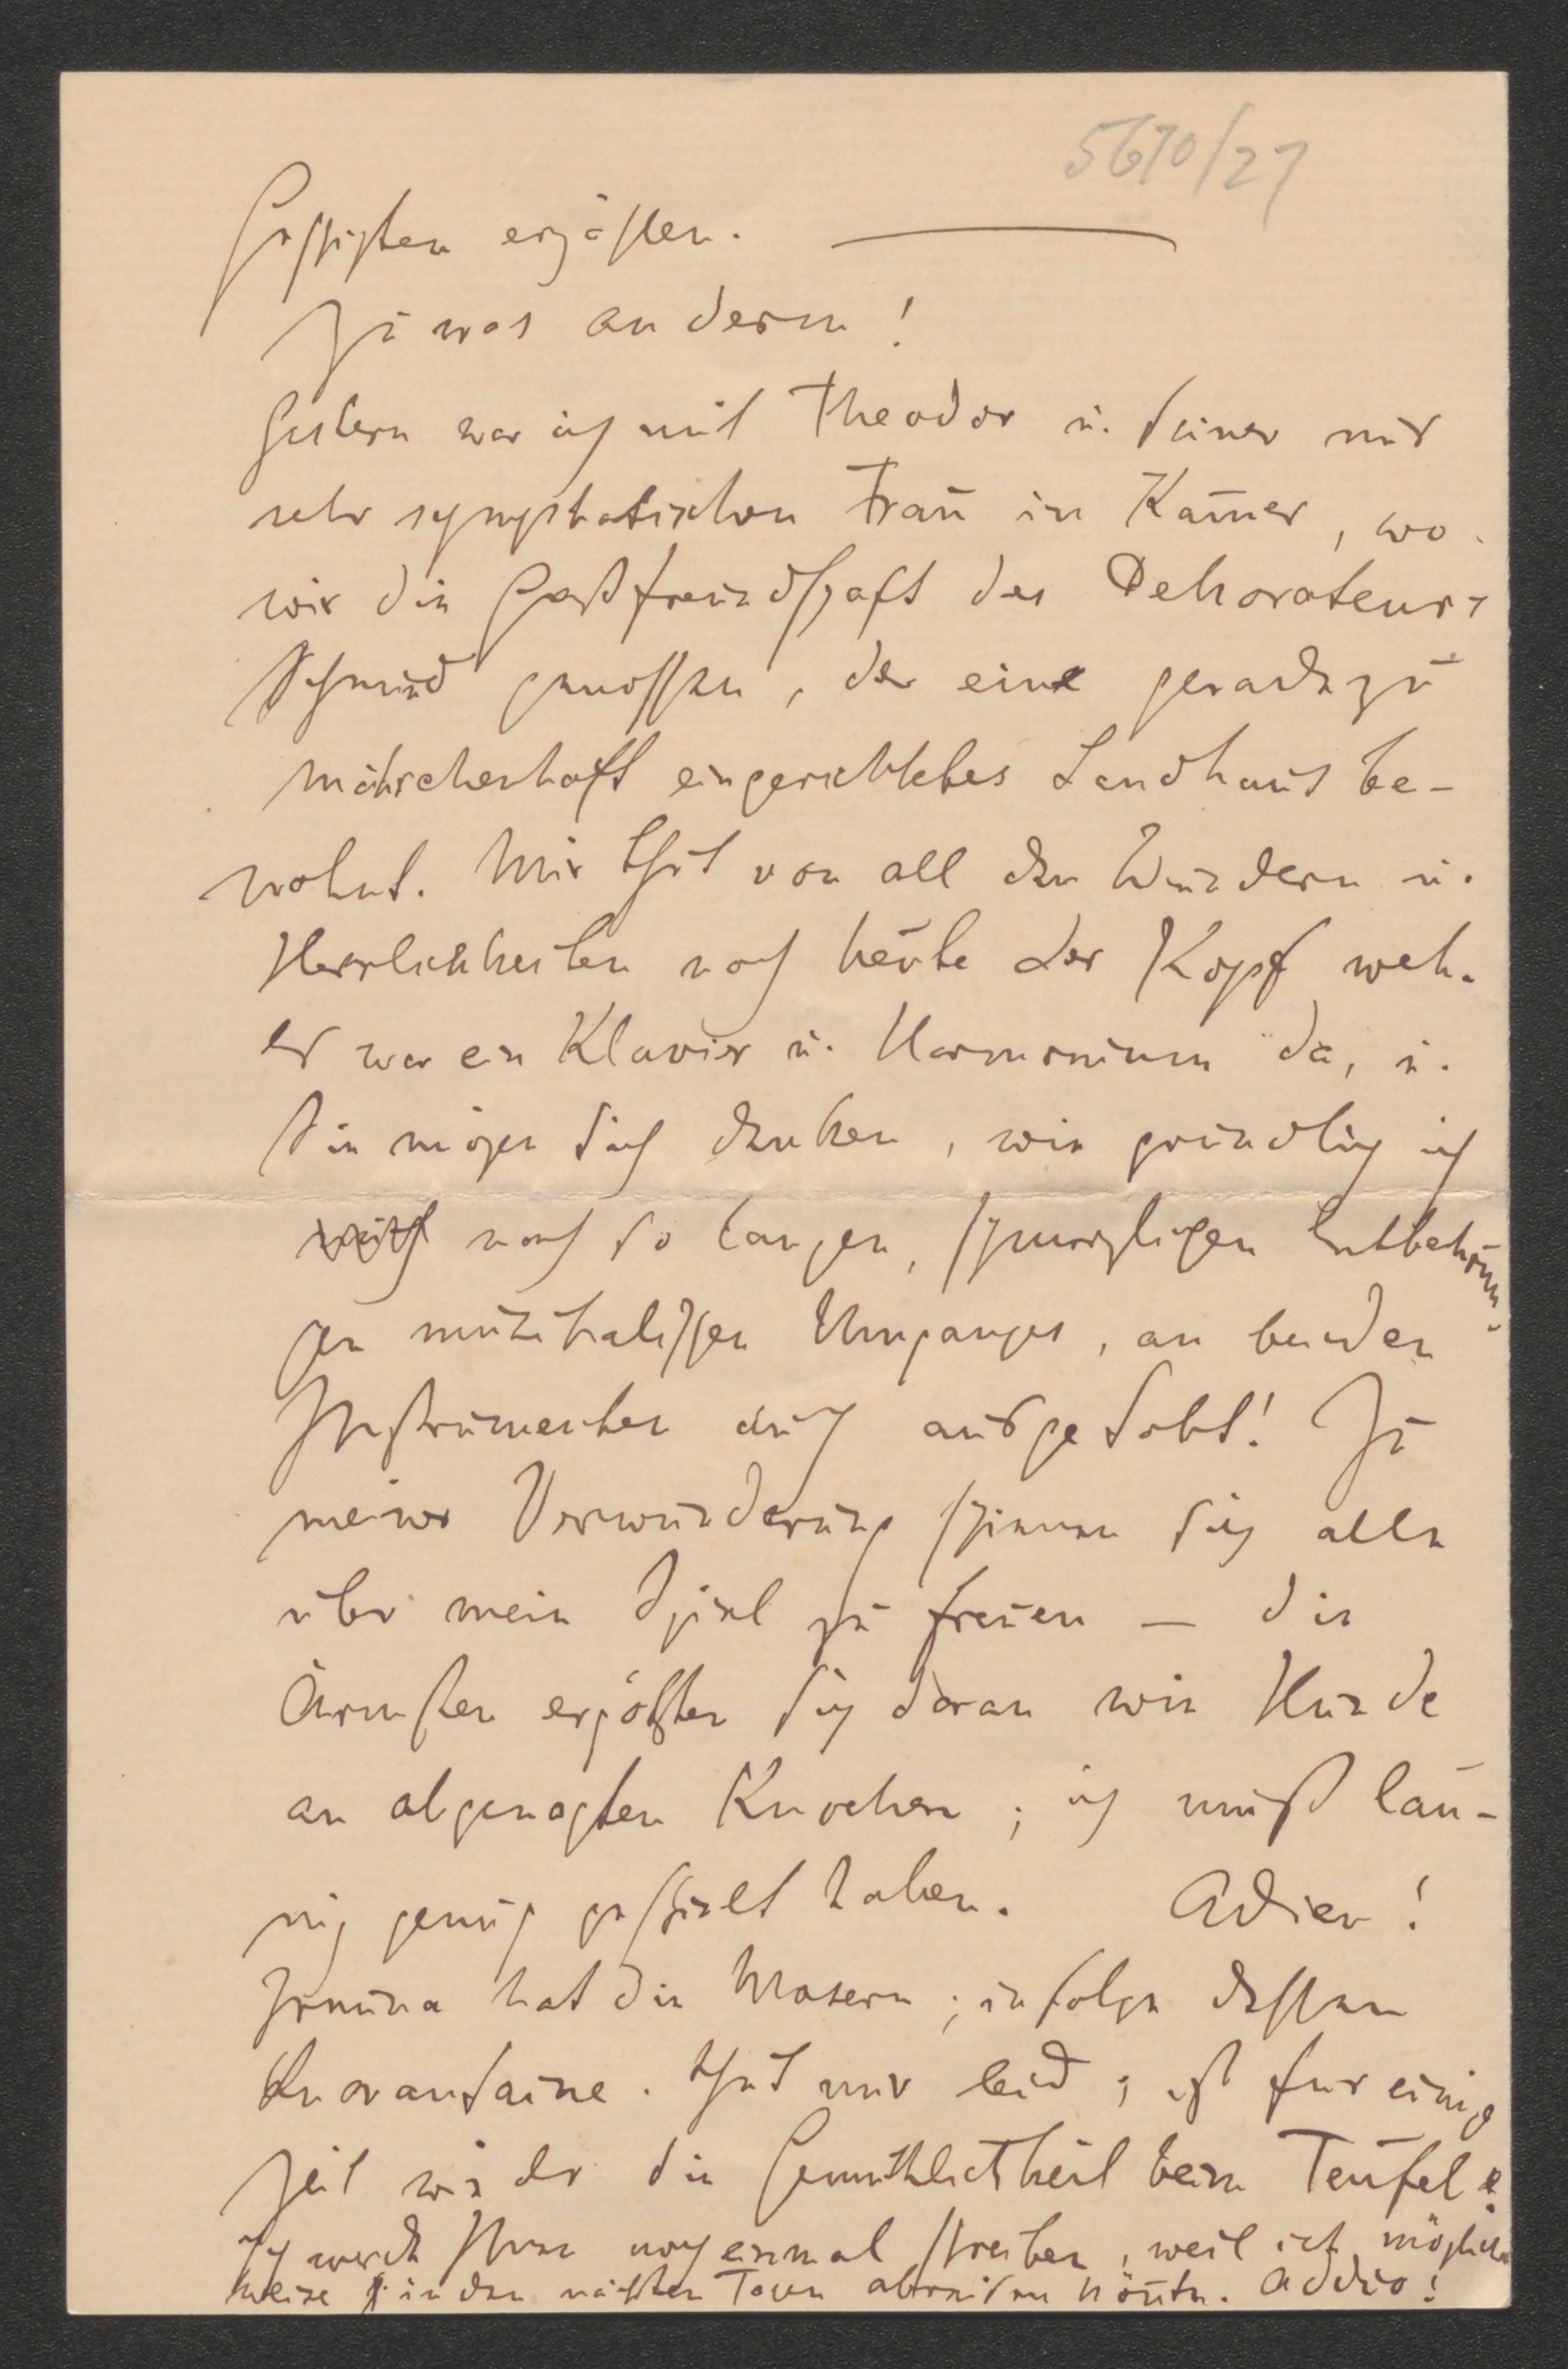 5670/27
Geschichten erzählen.
Zu was anderm!
Gestern war ich mit Theodor u. seiner mir
sehr symphatischen Frau in Kam̄er, wo
wir die Gastfreundschaft des Dekorateurs
Schmid genossen, der eine geradezu
märchenhaft eingerichtetes Landhaus be-
wohnt. Mir thut von all den Wundern u.
Herrlichkeiten noch heute der Kopf weh.
Es war ein Klavier u. Harmonium da, u.
Sie mögen sich denken, wie gründlich ich
mich nach so langen, schmerzlichen Entbehrun-
gen musikalischen Umganges, an beiden
Instrumenten auch ausgetobt! Zu
meiner Verwunderung schienen sich alle
über mein Spiel zu freuen — die
Ärmsten ergötzten sich daran wie Hunde
an abgenagten Knochen; ich muß lau-
nig genug gespielt haben. Adieu!
Irmina hat die Masern; infolge dessen
Quarantaine. Thut mir leid; ist für einige
Zeit wieder die Gemüthlichkeit beim Teufel.
Ich werde Ihnen noch einmal schreiben, weil ich möglicher
weise in den nächsten Tagen abreisen kön̄te. Addio!